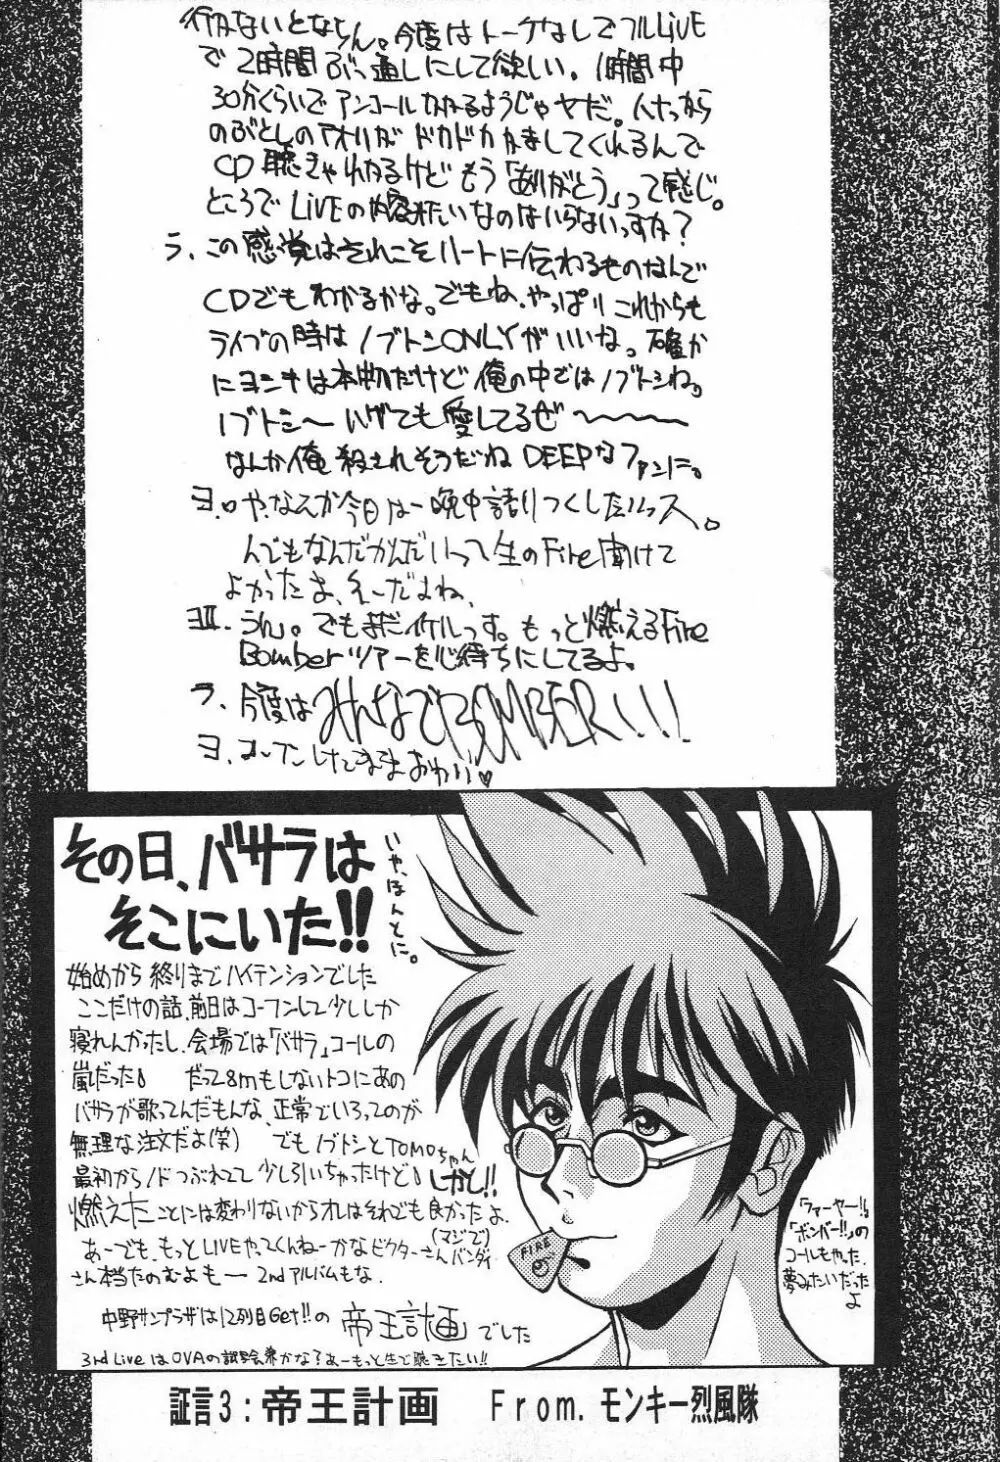 行かないとならん。今度はトークなしでフルLiVE
で2時間ぶっ通しにして欲しい。1時間中
30分くらいでアンコールかかるようじゃヤだ。んだから
のぶとしのアオリがドカドカかましてくれるんで
CD聴きゃわかるけどもう「ありがとう」って感じ。
ところでLiVEの内容みたいなのはいらないっすか?
ラ、この感覚はそれこそハートに伝わるものなんで
CDでもわかるかな。でもね、やっぱりこれからも
ライブの時はノブトシONLYがいいな。確か
にヨシキは本物だけど俺の中ではノブトシね。
ノブトシ〜 ハゲても愛してるぜ〜〜〜〜
なんか俺殺されそうだねDEEPなファンに。
ヨ.や、なんか今日は一晩中語りつくしたいっス。
んでもなんだかんだいって生のFire聞けて
よかったよ、そーだよね、
ヨII.うん。でもまだイケルっす。もっと燃えるFire
Bomberツアーを心待ちにしてるよ。
ラ.今度はみんなでBOMBER!!!
ヨ.コーフンしたままおわり♥
その日、バサラは
そこにいた!!
いや、ほんとに。
始めから終りまでハイテンションでした
ここだけの話、前日はコーフンして少ししか
寝れんかったし、会場では「バサラ」コールの
嵐だった。 だって8mもしないトコにあの
バサラが歌ってんだもんな、正常でいろってのが
無理な注文だよ(笑) でもノブトシとTOMOちゃん
最初からノドつぶれてて少し引いちゃったけど。しかし!!
燃えたことには変わりないからオレはそれでも良かったよ。
(マジで)
あーでも、もっとLIVEやってくんねーかなビクターさんバンダイ
さん本当たのむよもー 2ndアルバムもな。
中野サンプラザは12列目Get!!の 帝王計画 でした
3rd LiveはOVAの試写会兼かな?あーもっと生で聴きたい!!
FIRE
「ファーヤー!!」
「ボンバー!!」の
コールもやった
夢みたいだった
よ
証言3:帝王計画 From.モンキー烈風隊